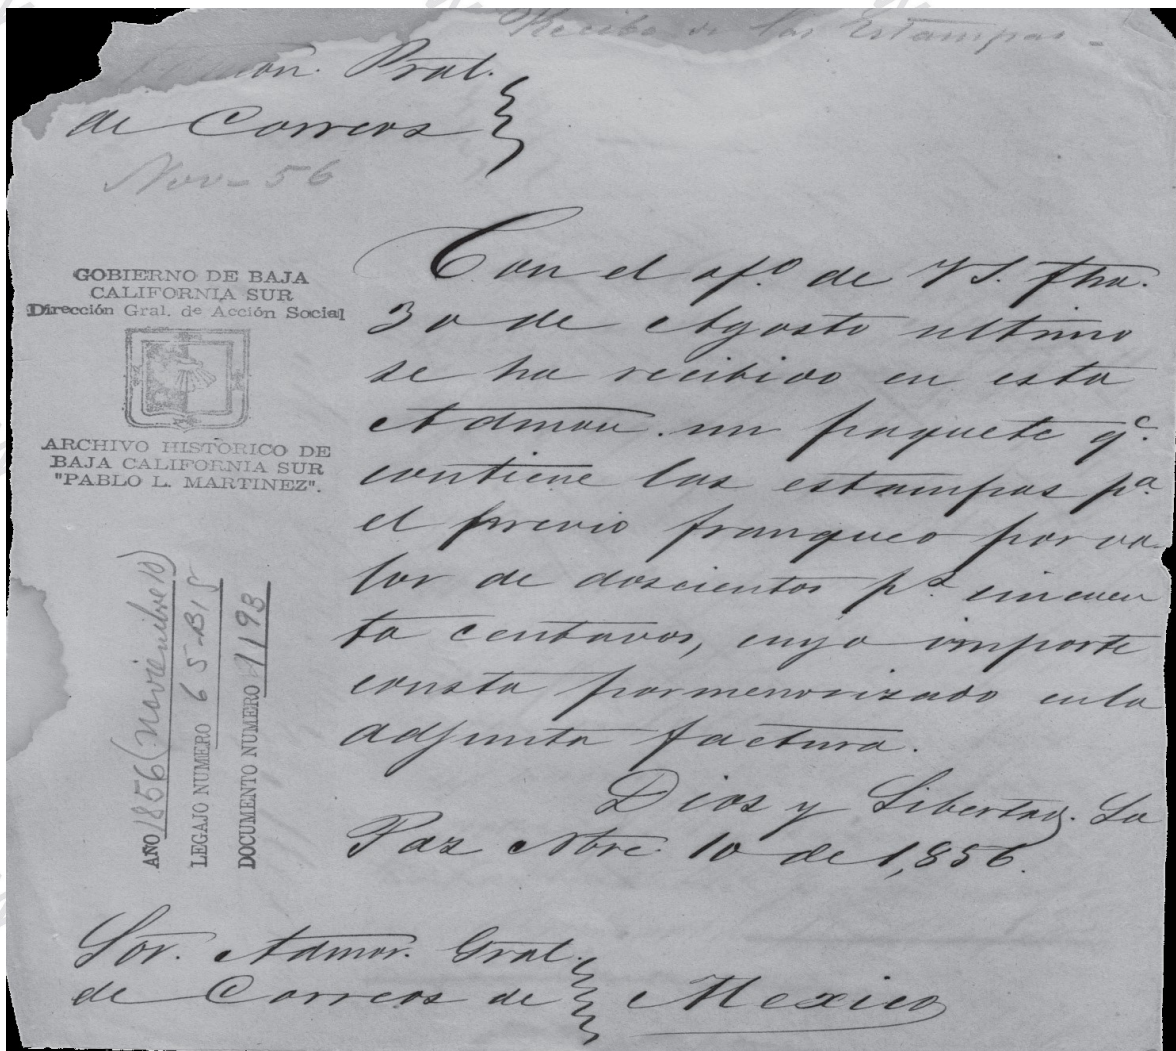 Recibo de las Estampas -
Pral.
de Correos
Nov - 56
GOBIERNO DE BAJA
CALIFORNIA SUR
Dirección Gral. de Acción Social
ARCHIVO HISTÓRICO DE
BAJA CALIFORNIA SUR
"PABLO L. MARTINEZ".
AÑO 1856 (Noviembre 10)
LEGAJO NUMERO 65-BIS
DOCUMENTO NUMERO 1193
Con el ofo. de V S. fha.
30 de Agosto ultimo
se ha recibido en esta
Admon. un paquete qe.
contiene las estampas pa.
el previo franqueo por va-
lor de doscientos ps. cincuen
ta centavos, cuyo importe
consta pormenorizado en la
adjunta factura.
Dios y Libertad. La
Paz Nbre. 10 de 1,856.
Sor. Admor. Gral.
de Correos de Mexico